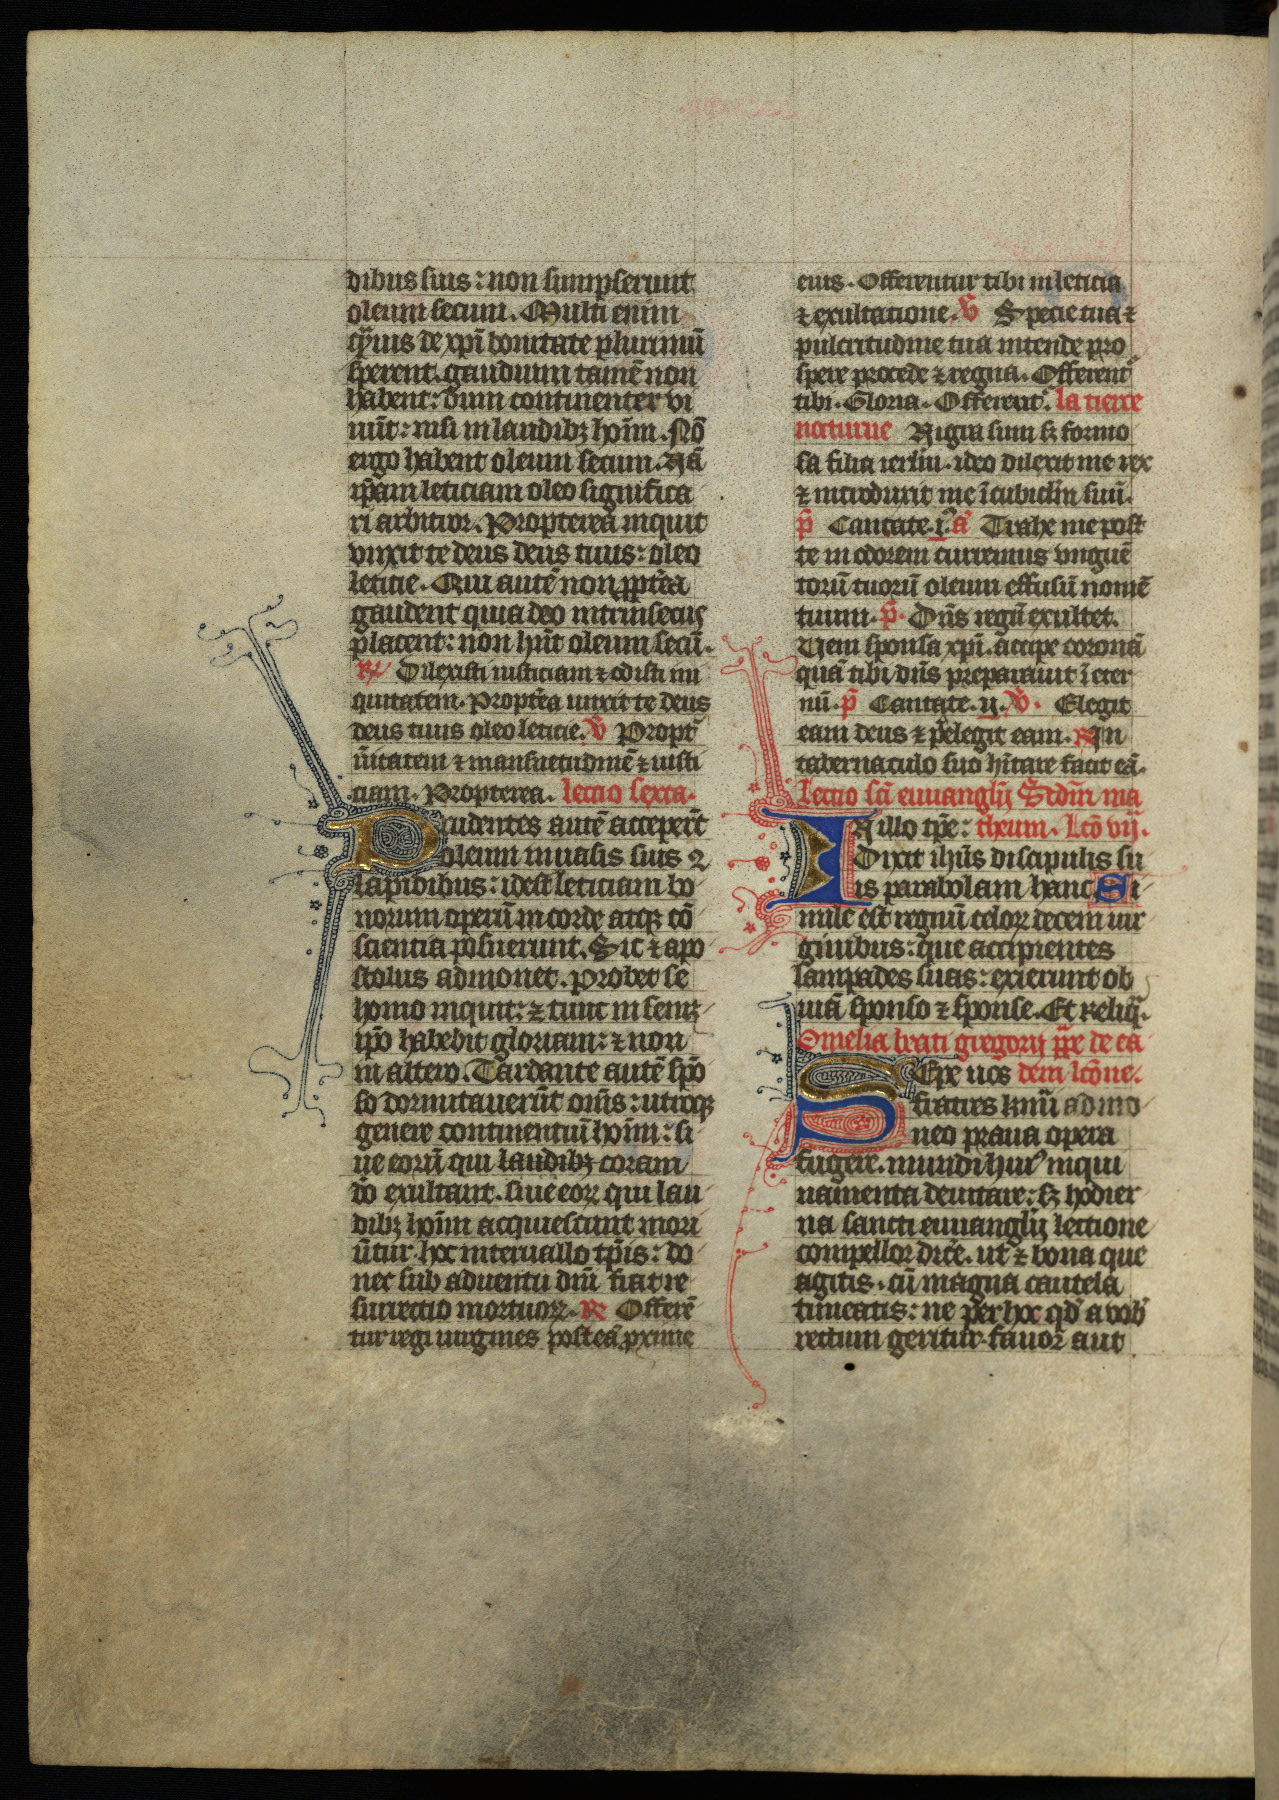 dibus suis : non sumpserunt
oleum secum. Multi enim
de xp̄i bonitate plurimū
sperent. gaudium tamē non
habent : dum continenter vi
uūt : nisi in laudibꝫ hoīm. Nō
ergo habent oleum secum. Nā
ip̄am leticiam oleo significa
ri arbitror. Propterea inquit
vnxit te deus deus tuus : oleo
leticie. Qui autē non ꝓpt̄ea
gaudent quia deo intrinsecus
placent : non hn̄t oleum secū.
R̷ Dilexisti iusticiam ⁊ odisti ini
quitatem. Propt̄ea unxit te deus
deus tuus oleo leticie. V̄ Propt̄
ūitatem ⁊ mansuetudinē ⁊ iusti
ciam. Propterea. lectio sexta.
Prudentes autē acceperūt
oleum in uasis suis ⁊
lapidibus : idest leticiam bo
norum operū in corde atqꝫ cō
scientia posuerunt. Sic ⁊ apo
stolus admonet. Probet se
homo inquit : ⁊ tunc in semꝫ
ip̄o habebit gloriam : ⁊ non
in altero. Tardante autē spō
so dormitauerūt om̄s : utroqꝫ
genere continentiū hoīm : si
ue eorū qui laudibꝫ coram
dō exultant. siue eoꝝ qui lau
dibꝫ hoīm acquiescunt mori
ūtur. hoc interuallo tp̄is : do
nec sub aduentu dn̄i fiat re
surrectio mortuoꝝ. R̷ Offerē
tur regi uirgines post eā pxime
eius. Offerentur tibi in leticia
⁊ exultatione. V̄ Specie tua ⁊
pulcritudine tua intende pro
spere procede ⁊ regna. Offerent̄
tibi. Gloria. Offerent̄. la tierce
nocturne Nigra sum sꝫ formo
sa filia ierl̄m. ideo dilexit me rex
⁊ introduxit me ī cubicl̄m suū.
p̄ Cantate. i. a̅ Trahe me post
te in odorem curremus vnguē
torū tuorū oleum effusū nomē
tuum. p̄. Dn̄s regū exultet.
Veni sponsa xp̄i. accipe coronā
quā tibi dn̄s preparauit ī eter
nū. p̄ Cantate. ij. V̄. Elegit
eam deus ⁊ p̄elegit eam. R̷ In
tabernaculo suo hītare facit eā.
Lectio sc̄i euuanglij Scdm̄ ma
In illo tp̄e : theum. Lcō vij.
Dixit ihūs discipulis su
is parabolam hanc Si
mile est regnū celoꝝ decem uir
ginibus : que accipientes
lampades suas : exierunt ob
uiā sponso ⁊ sponse. Et reliq̄.
Omelia beati gregorij ꝑpe de ea
Sepe uos dem lcōne.
fratres km̄i admo
neo praua opera
fugere. mundi huiꝰ inqui
namenta deuitare : sꝫ hodier
na sancti euuanglij lectione
compellor dicē. ut ⁊ bona que
agitis. cū magna cautela
timeatis : ne per hoc qd̄ a vob̄
rectum geritur. fauor aut